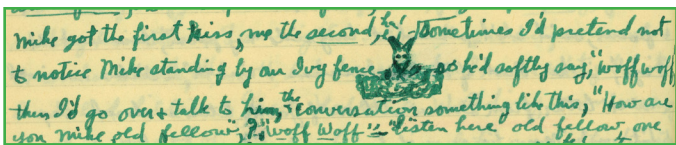 Mike got the first kiss, me the second, ha! Sometimes I'd pretend not
to notice Mike standing by an Ivy fence so he'd softly say, "Woff woff
then I'd go over & talk to him, the conversation something like this, "How are
you Mike old fellow", "Woff Woff" - "listen here old fellow, one